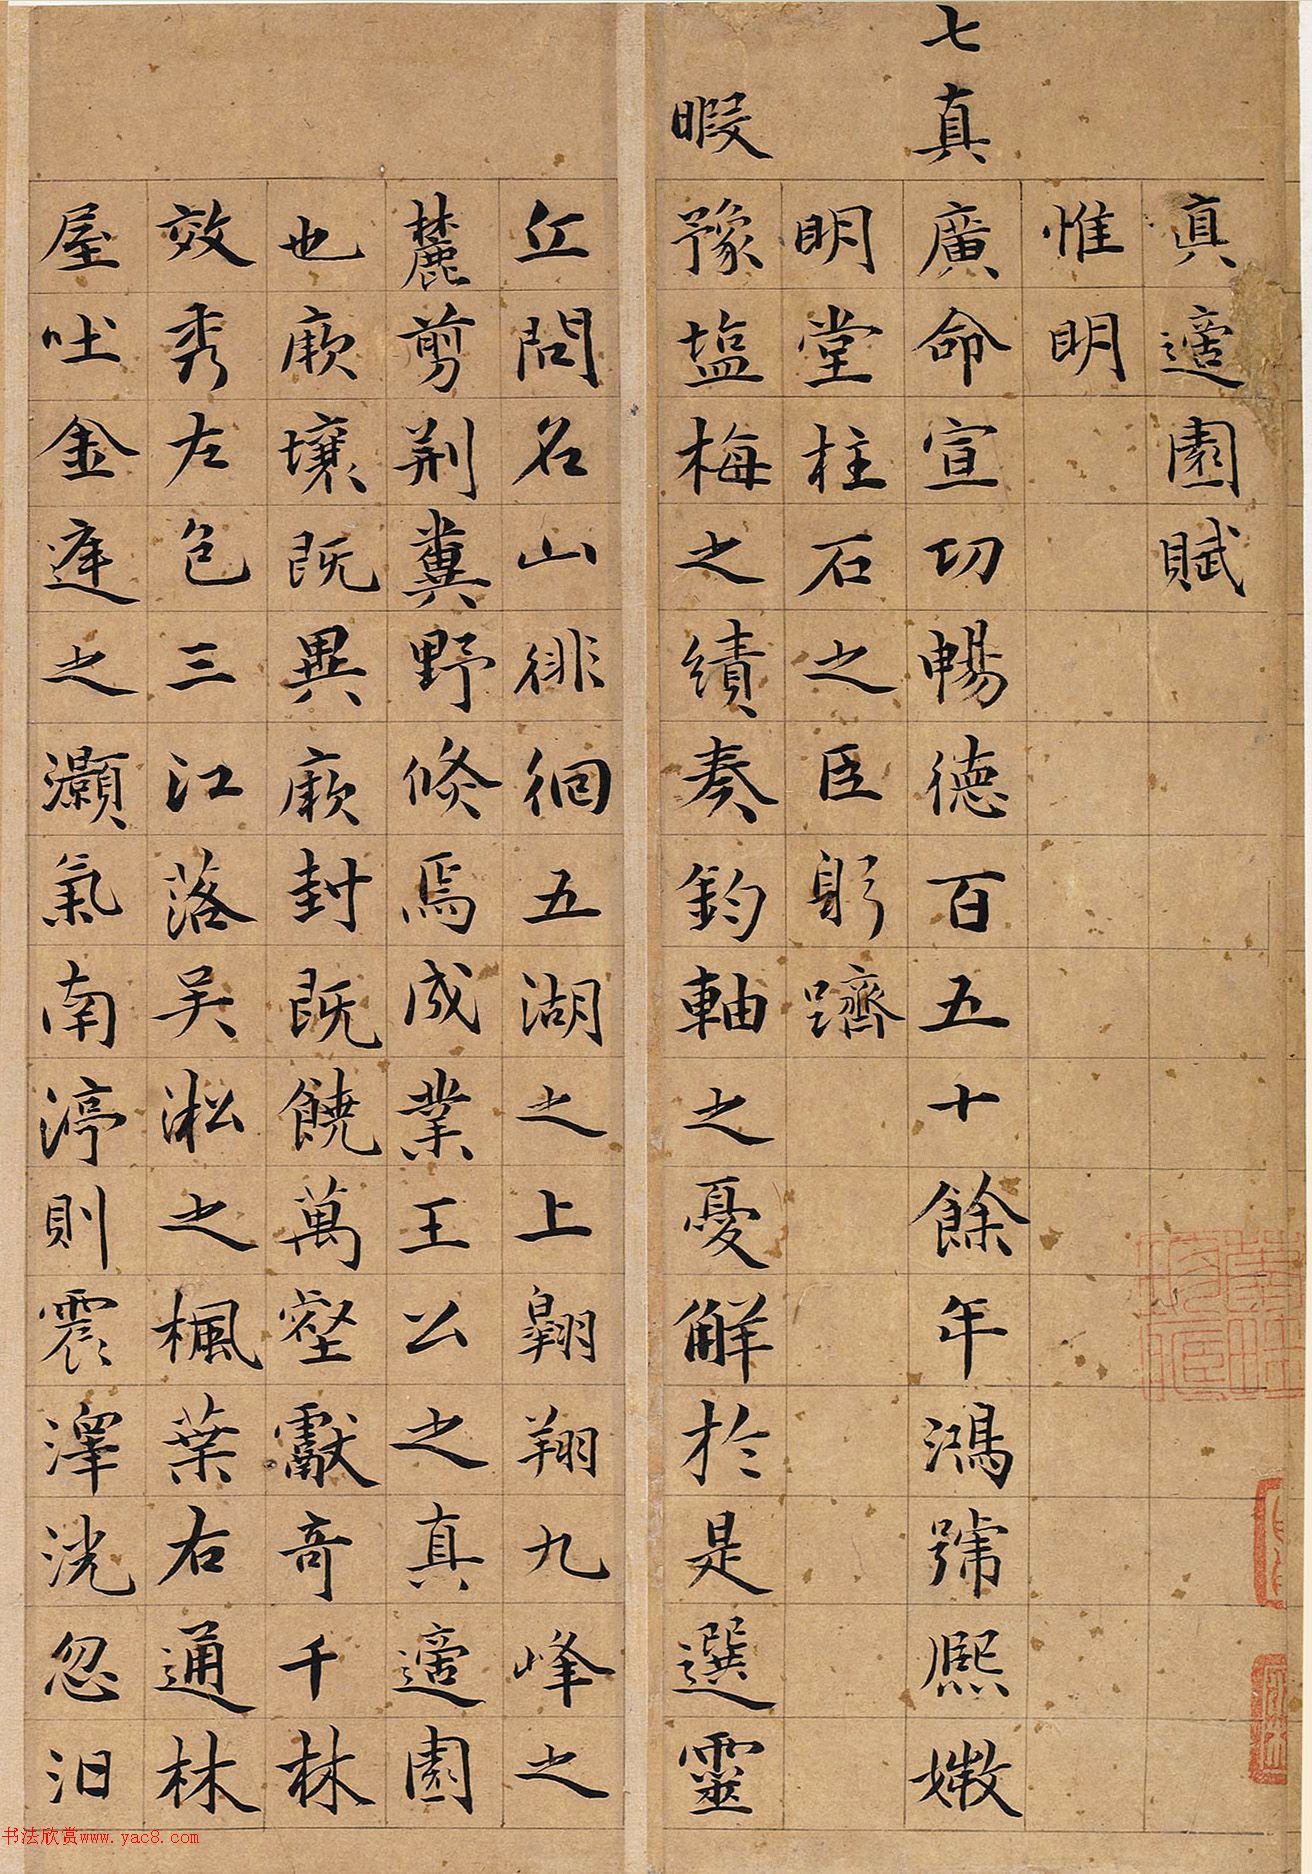 真適園賦
惟明
七真廣命宣切暢德百五十餘年鴻號熙
明堂柱石之臣躬躋
暇豫塩梅之績奏鈞軸之憂解於是選靈
丘問名山徘徊五湖之上翱翔九峰之
麓剪荆糞野倐焉成業王公之真適園
也厥壤既異厥封既饒萬壑獻奇千林
效秀左包三江落吴淞之楓葉右通林
屋吐金庭之灝氣南渟則震澤洸忽汨
书法欣赏www.yac8.com